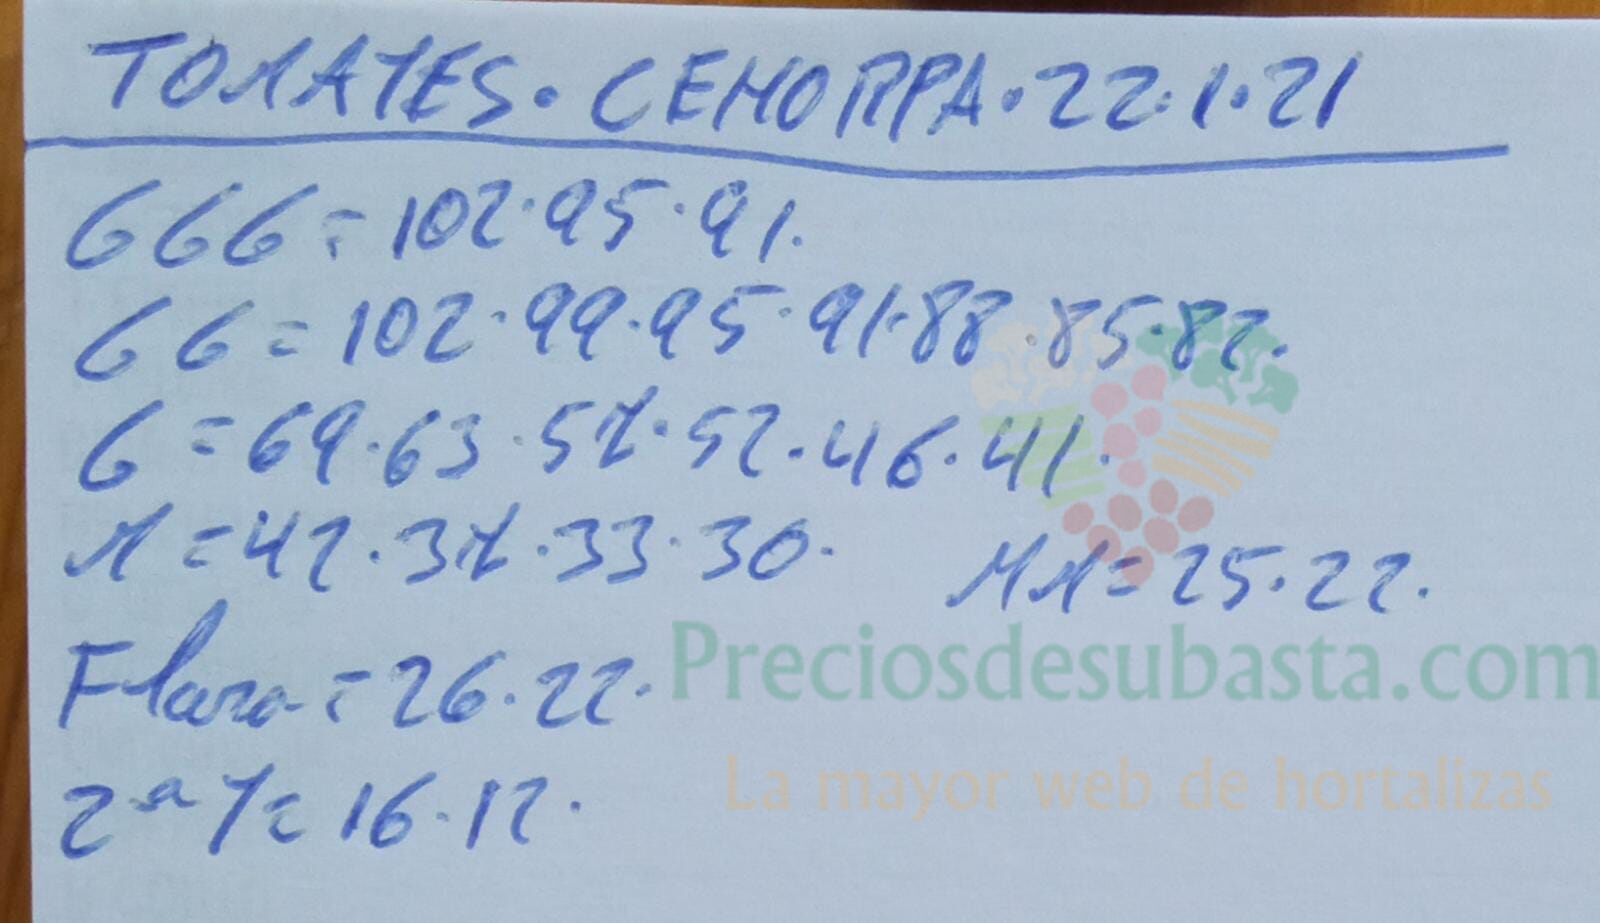 TOMATES · CEHORPA · 22 · 1 · 21
GGG = 102 · 95 · 91.
GG = 102 · 99 · 95 · 91 · 88 · 85 · 82.
G = 69 · 63 · 57 · 52 · 46 · 41.
M = 42 · 37 · 33 · 30.
MM = 25 · 22.
Flara = 26 · 22.
Preciosdesubasta.com
La mayor web de hortalizas
2ª T = 16 · 12.